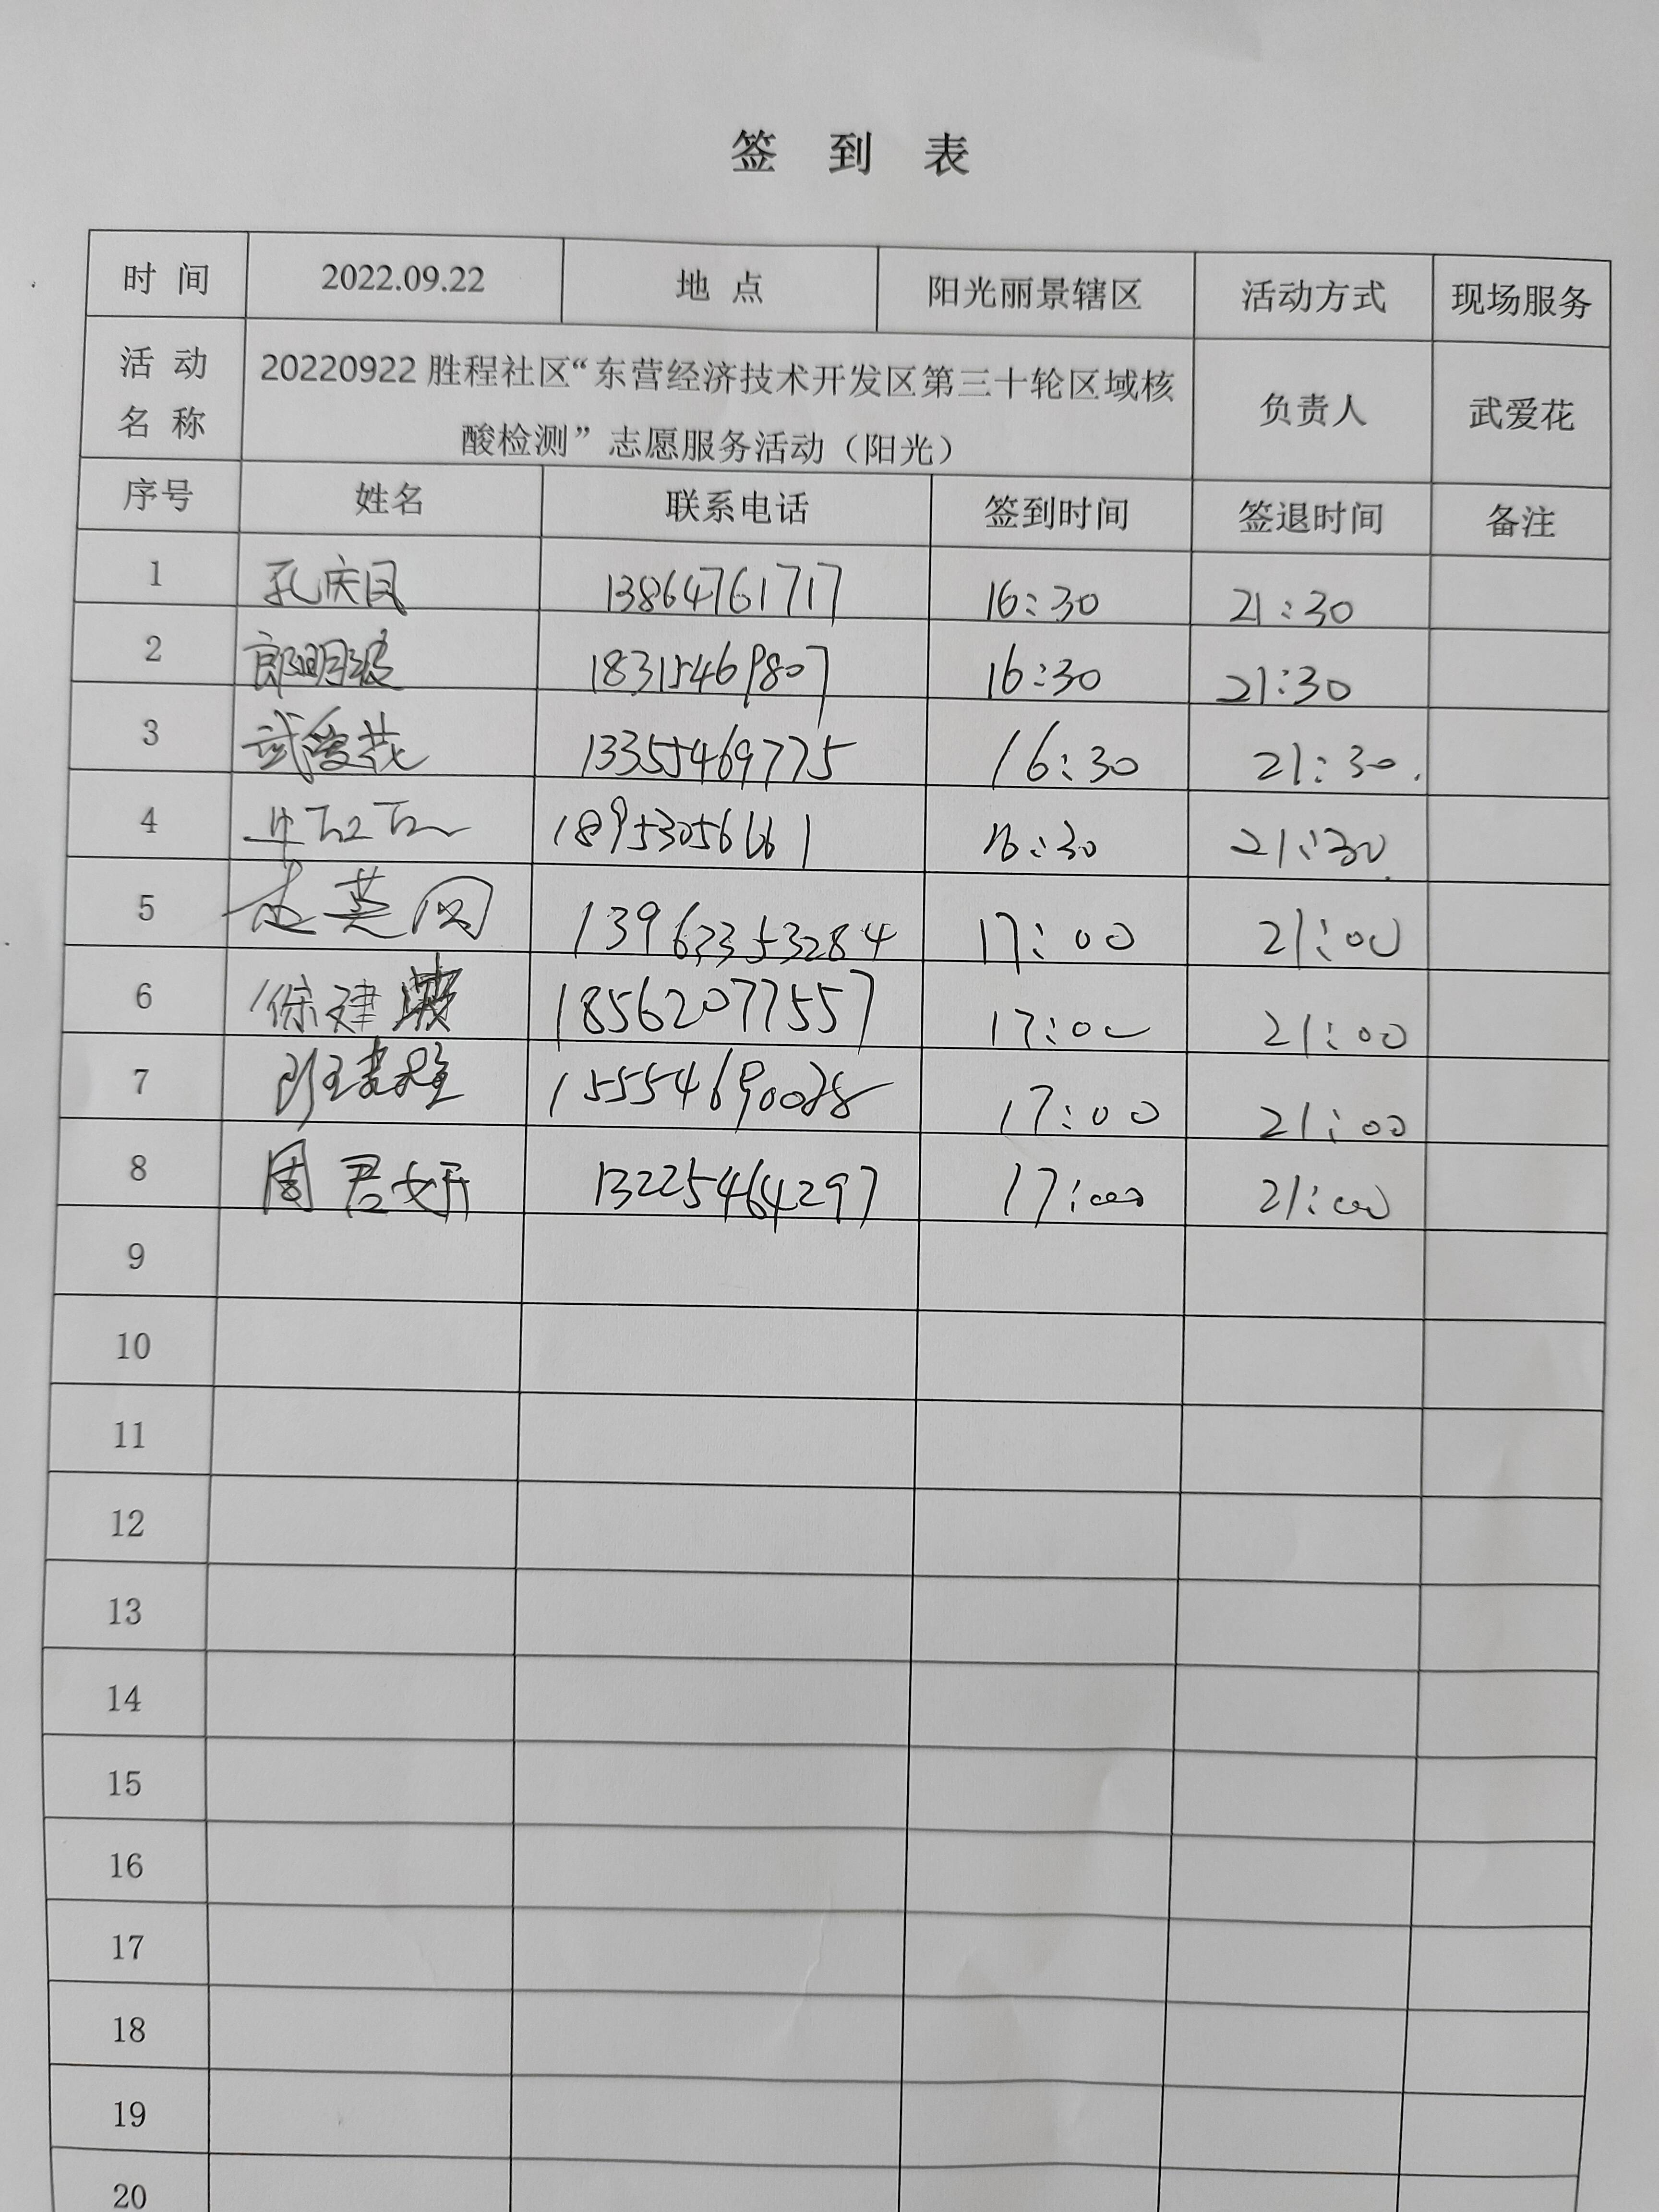 签 到 表
时 间 2022.09.22 地 点 阳光丽景辖区 活动方式 现场服务
活 动 名 称 20220922 胜程社区“东营经济技术开发区第三十轮区域核
酸检测” 志愿服务活动（阳光） 负责人 武爱花
序号 姓名 联系电话 签到时间 签退时间 备注
1 孔庆民 13864761717 16:30 21:30
2 郎明波 18315469807 16:30 21:30
3 武爱花 13355469775 16:30 21:30.
4 18953056661 16:30 21:30
5 17:00 21:00
6 徐建 18562077557 17:00 21:00
7 17:00 21:00
8 周君妍 13225464297 17:00 21:00
9
10
11
12
13
14
15
16
17
18
19
20